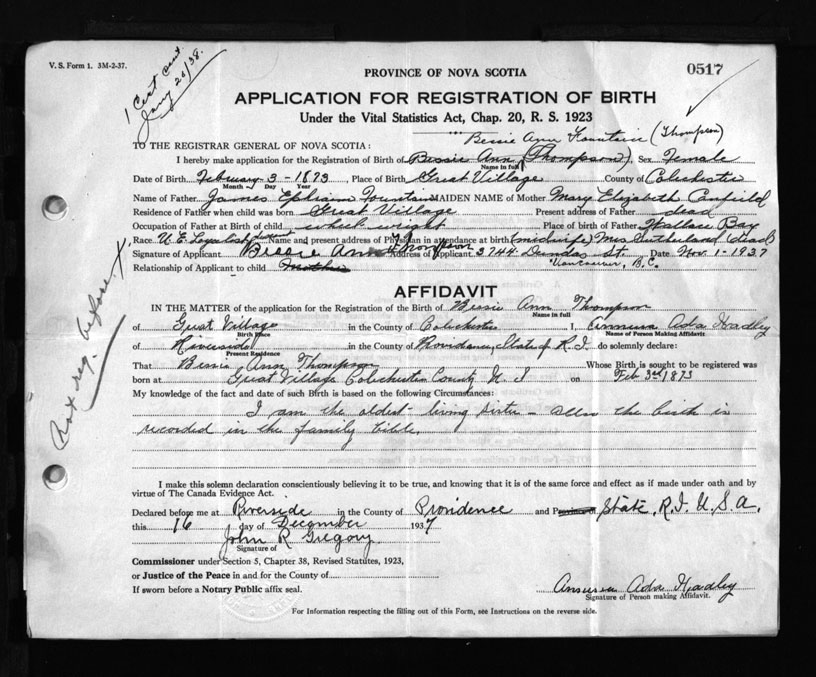 V. S. Form 1. 3M-2-37.
1 Cert sent
Jany 20/38.
PROVINCE OF NOVA SCOTIA
0517
APPLICATION FOR REGISTRATION OF BIRTH
Under the Vital Statistics Act, Chap. 20, R. S. 1923
Bessie Ann Fountain (Thompson)
TO THE REGISTRAR GENERAL OF NOVA SCOTIA:
I hereby make application for the Registration of Birth of Bessie Ann (Thompson), Sex Female
Name in full
Date of Birth February 3-1873, Place of Birth Great Village County of Colechester
Month Day Year
Name of Father James Ephriam Fountain MAIDEN NAME of Mother Mary Elizabeth Canfield
Residence of Father when child was born Great Village Present address of Father dead
Occupation of Father at Birth of child wheel wright Place of birth of Father Wallace Bay
Race U E Loyalist descent Name and present address of Physician in attendance at birth (midwife) Mrs Sutherland (dead)
Signature of Applicant Bessie Ann Thompson Address of Applicant 3744 Dundas St. Date Nov. 1-1937
Relationship of Applicant to child Mother Vancouver, B.C.
AFFIDAVIT
IN THE MATTER of the application for the Registration of Birth of Bessie Ann Thompson
Name in full
of Great Village in the County of Colechester I, Ada Hadley
Birth Place Name of Person Making Affidavit
of Riverside in the County of Providence, State of R.I. do solemnly declare:
Present Residence
That Bessie Ann Thompson Whose Birth is sought to be registered was
born at Great Village Colechester County N.S on Feb 3rd 1873
My knowledge of the fact and date of such Birth is based on the following Circumstances:
I am the oldest living sister – also the birth is
recorded in the family bible.
Not reg. before. X
I make this solemn declaration conscientiously believing it to be true, and knowing that it is of the same force and effect as if made under oath and by
virtue of The Canada Evidence Act.
Declared before me at Riverside in the County of Providence and Province of State, R.I. U.S.A.
this 16 day of December 1937
John R Gregory
Signature of
Commissioner under Section 5, Chapter 38, Revised Statutes, 1923,
or Justice of the Peace in and for the County of
If sworn before a Notary Public affix seal.
Ada Hadley
Signature of Person making Affidavit.
For Information respecting the filling out of this Form, see Instructions on the reverse side.